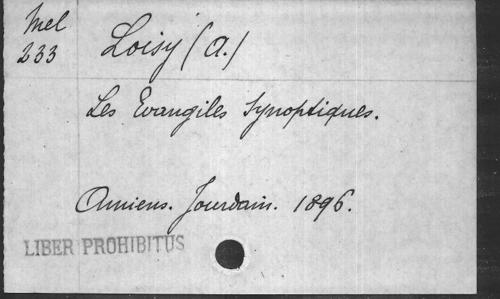 Mel
233
Loisy (A.)
Les Evangiles Synoptiques.
Amiens. Jourdain. 1896.
LIBER PROHIBITUS